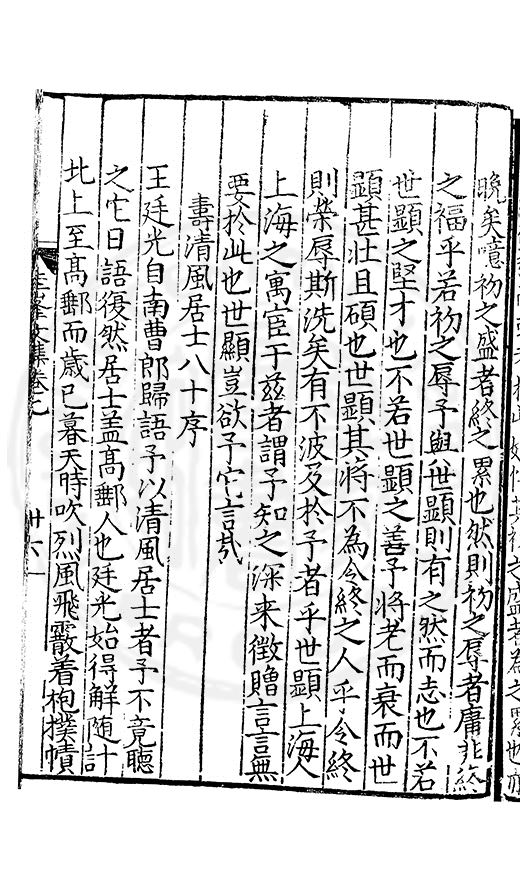 晩矣噫初之盛者終之累也然則初之辱者庸非終
之福乎若初之辱予與世顯則有之然而志也不若
世顯之堅才也不若世顯之善予將老而衰而世
顯甚壯且碩也世顯其將不為令終之人乎令終
則榮辱斯洗矣有不波及於予者乎世顯上海人
上海之寓宦于兹者謂予知之深来徵贈言言無
要於此也世顯豈欲予它言㢤
壽清風居士八十序
王廷光自南曹郎歸語予以清風居士者予不竟聽
之它日語復然居士盖髙郵人也廷光始得解随計
北上至髙郵而歳已暮天時吹烈風飛霰着袍撲幘
圭峯文集卷之九
廿六